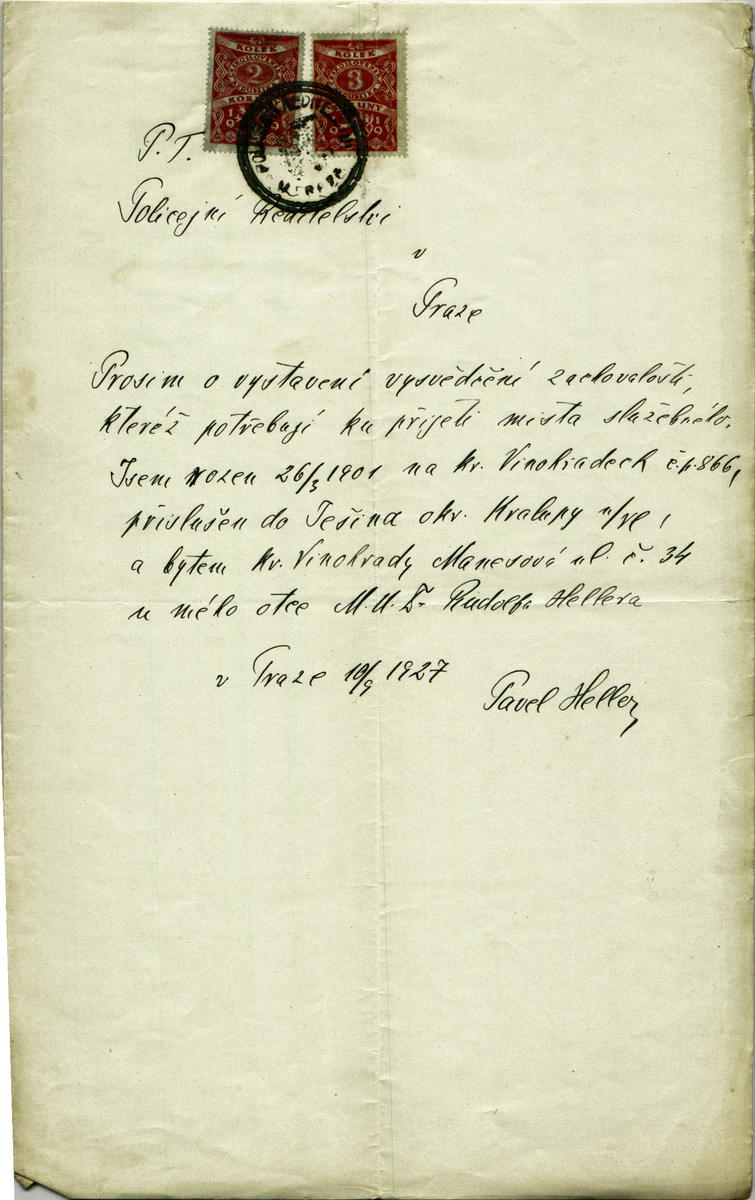 KOLEK KOLEK
2 3
1919 1919
P. T.
Policejní Ředitelství
v
Praze
Prosím o vystavení vysvědčení zachovalosti,
kteréž potřebuji ku přijetí místa služebného.
Jsem rozen 26/3 1901 na kr. Vinohradech č.p. 866,
příslušen do Tešína okr. Kralupy n/Vl,
a bytem kr. Vinohrady Manesová ul. č. 34
u mého otce M.U.Dr Rudolfa Hellera
v Praze 10/9 1927
Pavel Heller